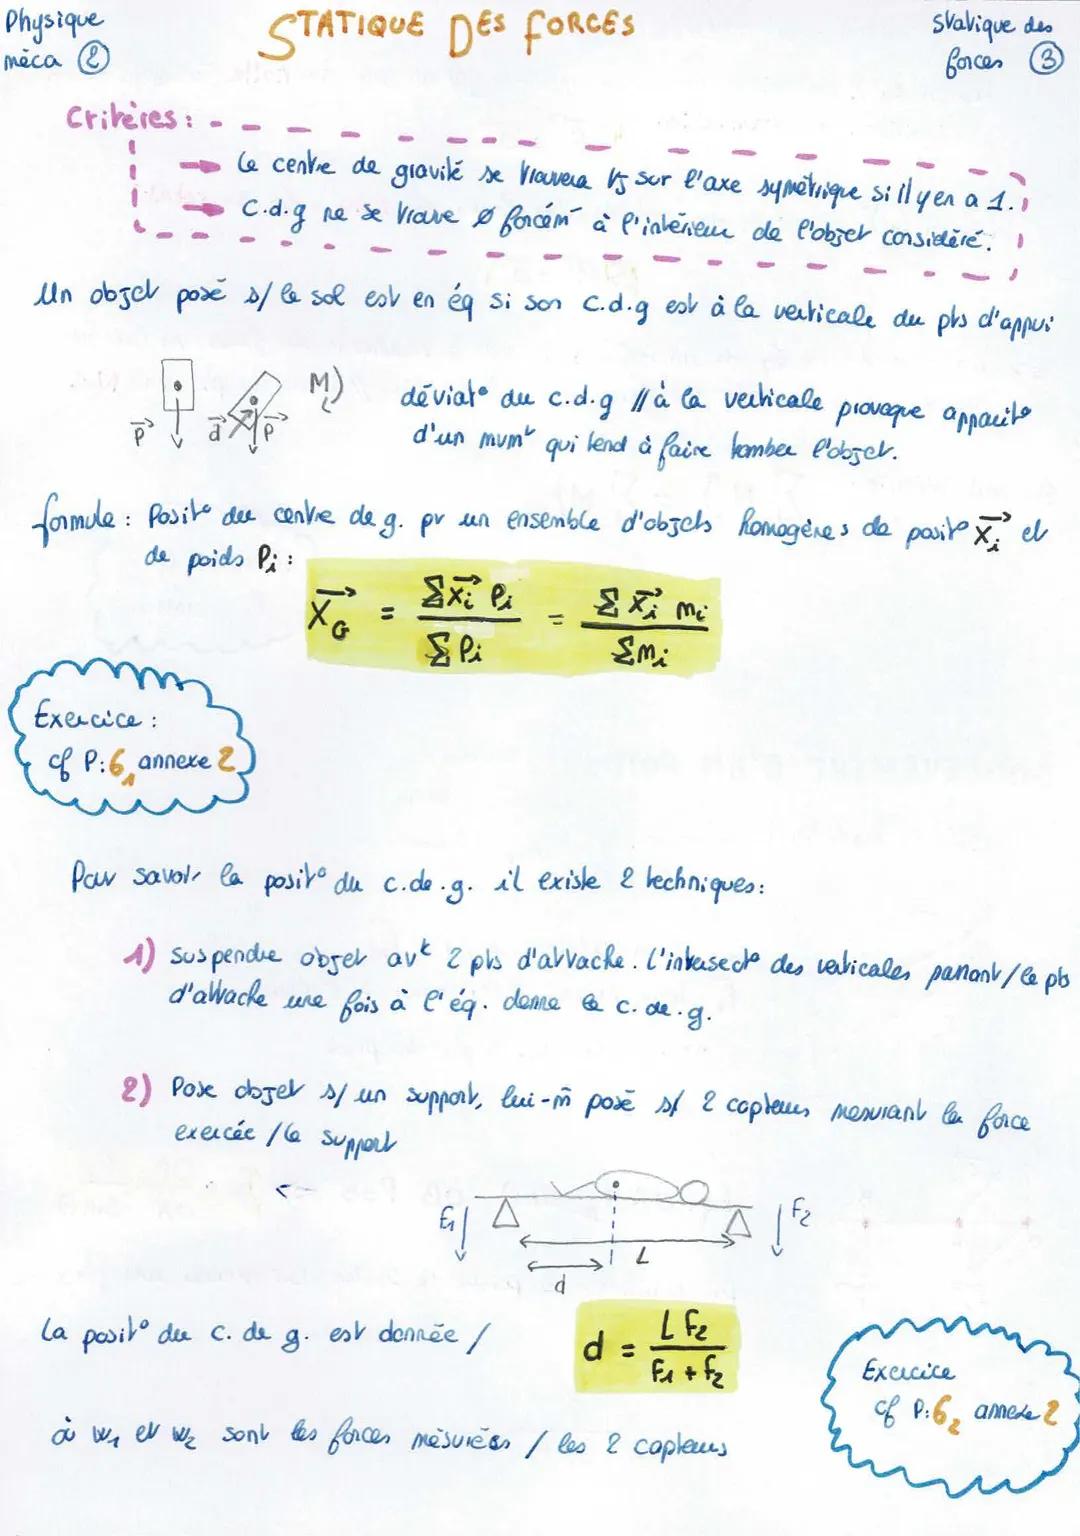 Physique
méca ②
STATIQUE DES FORCES
Statique des
forces ③
Critères :
→ Le centre de gravité se trouvera tjs sur l'axe symétrique si il y en a 1.
→ C.d.g ne se trouve ∅ forcémᵗ à l'intérieur de l'objet considéré.
Un objet posé s/ le sol est en éq si son C.d.g est à la verticale du pts d'appui
P⃗
d⃗
P⃗
M)
déviat° du c.d.g // à la verticale provoque apparit°
d'un mvmᵗ qui tend à faire tomber l'objet.
formule : Posit° du centre de g. pr un ensemble d'objets homogènes de posit° X⃗i et
de poids Pi :
X⃗G = ΣX⃗i Pi / ΣPi = ΣX⃗i mi / Σmi
Exercice :
cf P:6₁ annexe 2
Pour savoir la posit° du c.de.g. il existe 2 techniques :
1) Suspendre objet avᵏ 2 pts d'attache. L'intersect° des verticales passant / le pts
d'attache une fois à l'éq. donne le c.de.g.
2) Pose objet s/ un support, lui-m̂ posé s/ 2 capteurs mesurant la force
exercée / le support
F1
F2
L
d
La posit° du c. de g. est donnée /
d = L F2 / F1 + F2
où w1 et w2 sont les forces mésurées / les 2 capteurs
Exercice
cf P:6₂ annexe 2